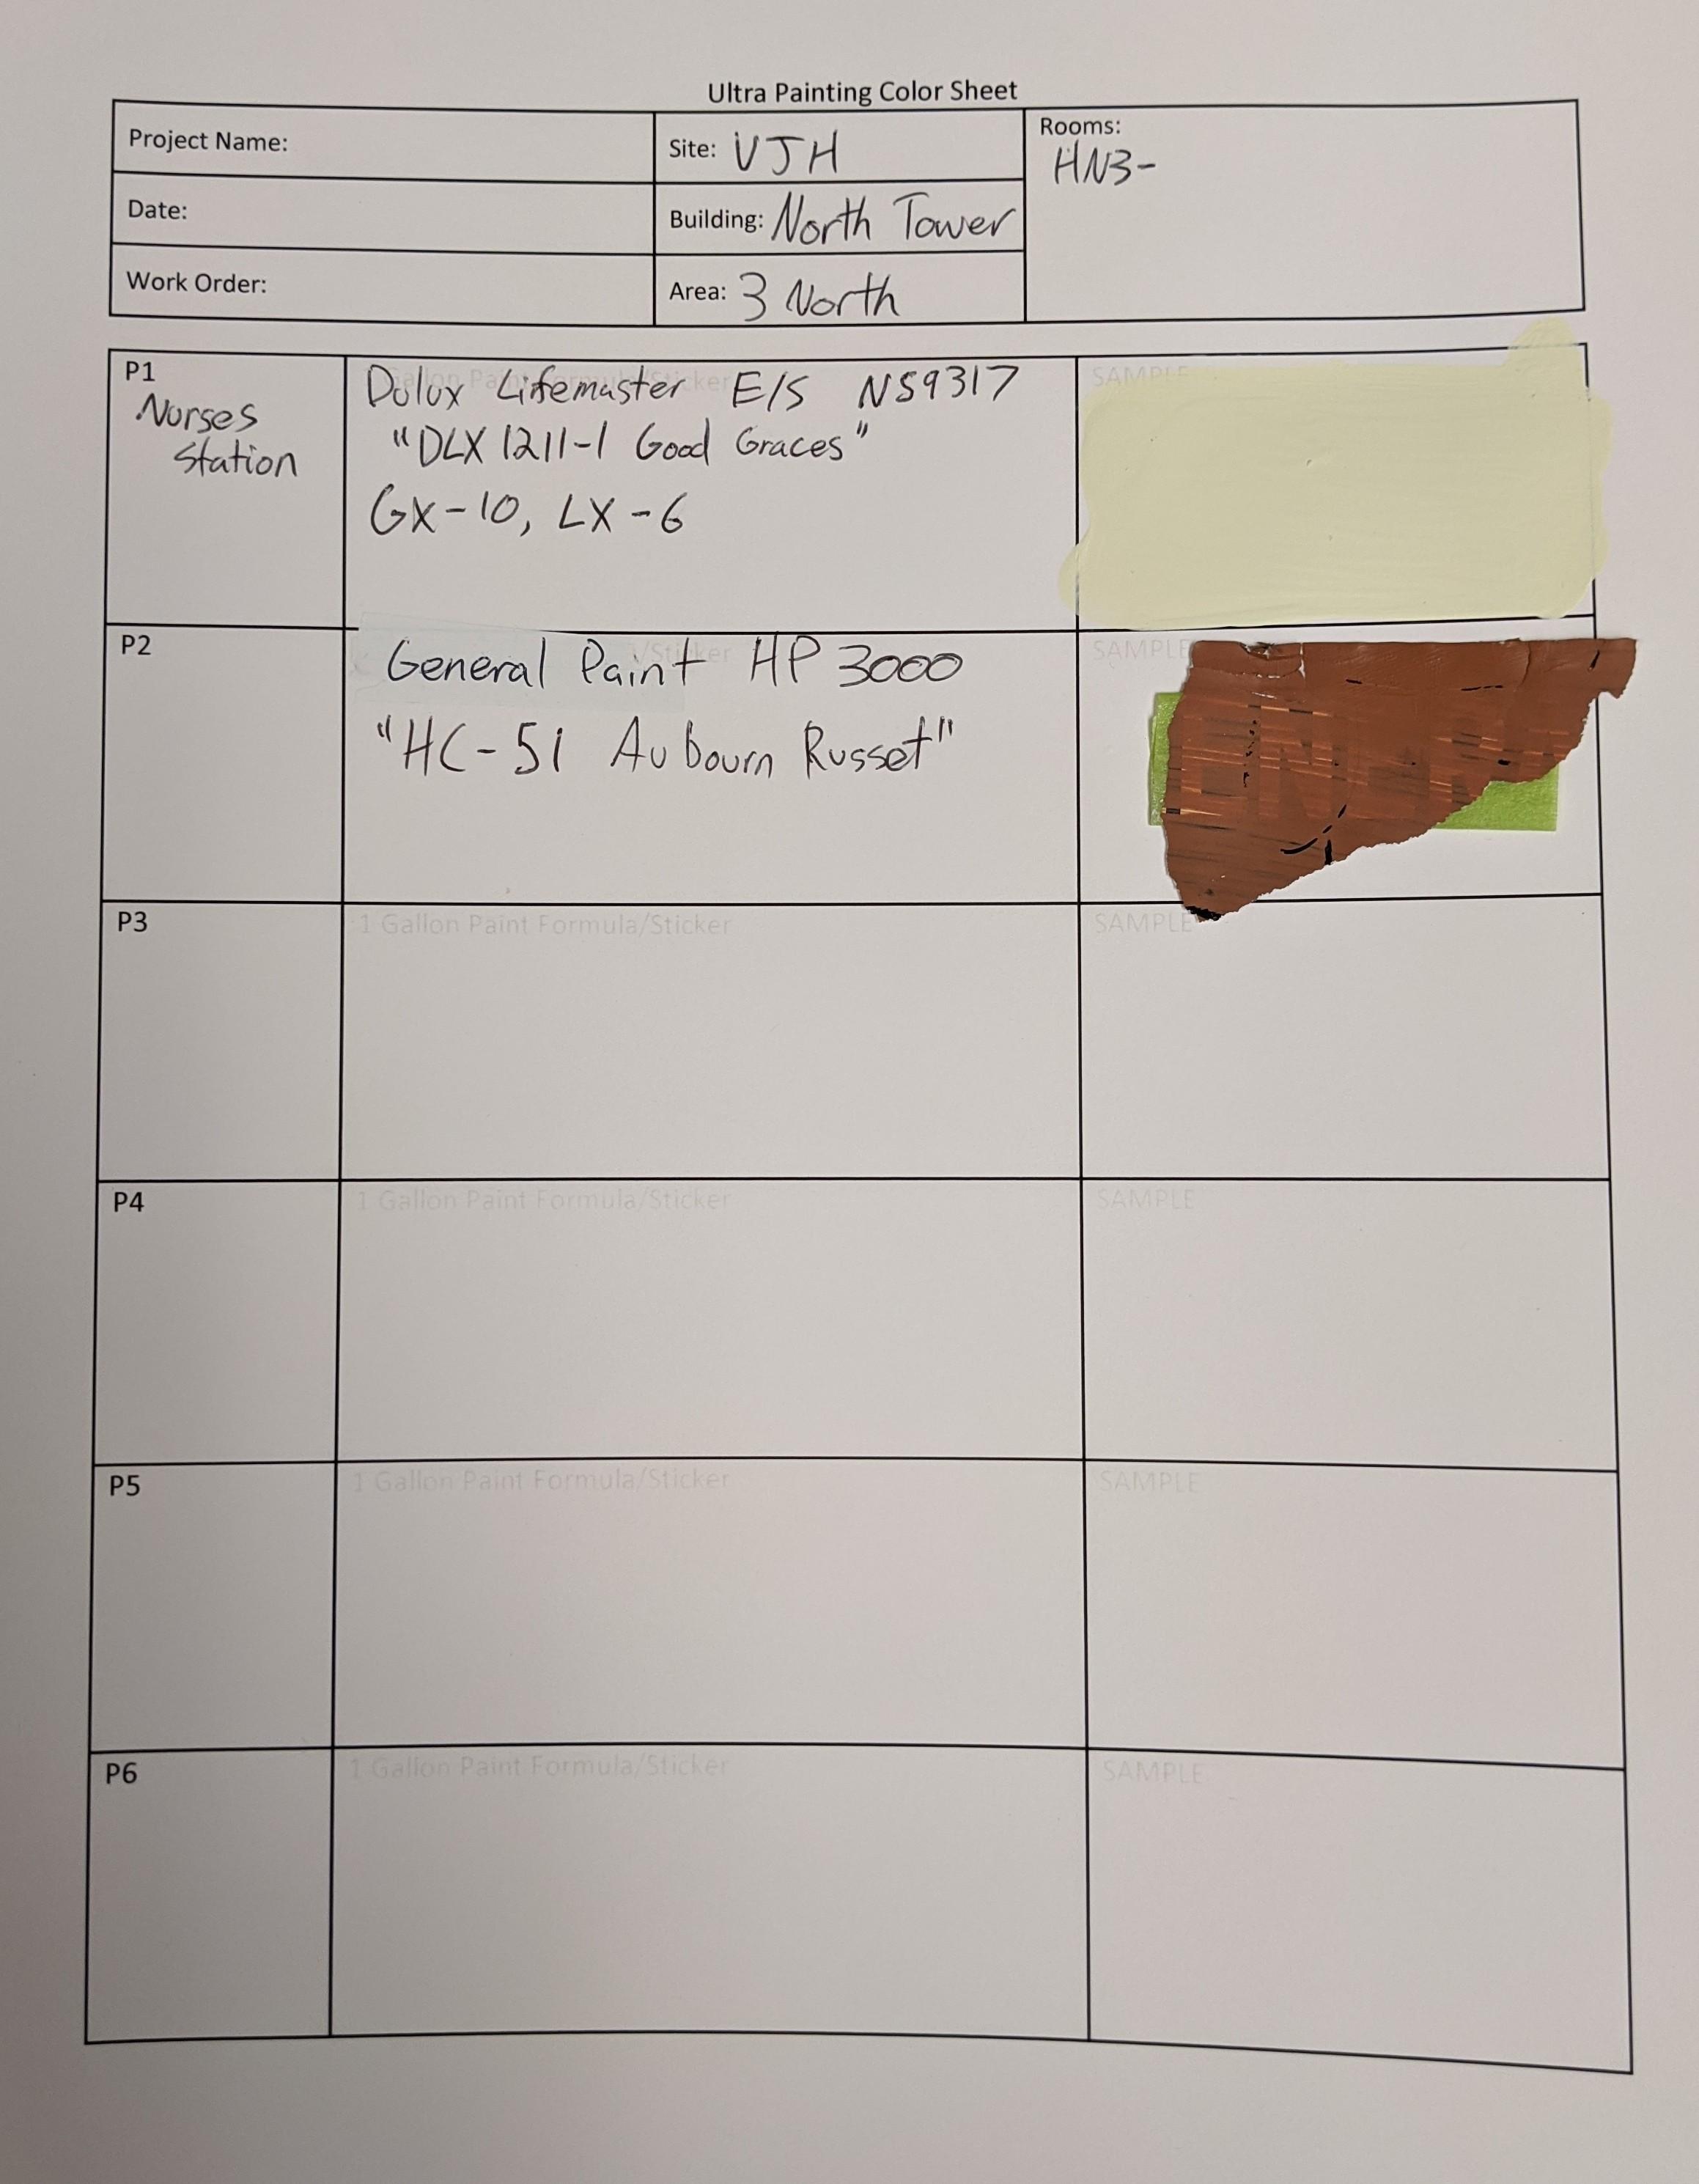 Ultra Painting Color Sheet
Project Name:
Site: VJH
Rooms:
HN3-
Date:
Building: North Tower
Work Order:
Area: 3 North
P1
Nurses
Station
Dulux Lifemaster E/S NS9317
"DLX 1211-1 Good Graces"
GX-10, LX-6
SAMPLE
P2
General Paint HP 3000
"HC-51 Aubourn Russet"
SAMPLE
P3
1 Gallon Paint Formula/Sticker
SAMPLE
P4
1 Gallon Paint Formula/Sticker
SAMPLE
P5
1 Gallon Paint Formula/Sticker
SAMPLE
P6
1 Gallon Paint Formula/Sticker
SAMPLE